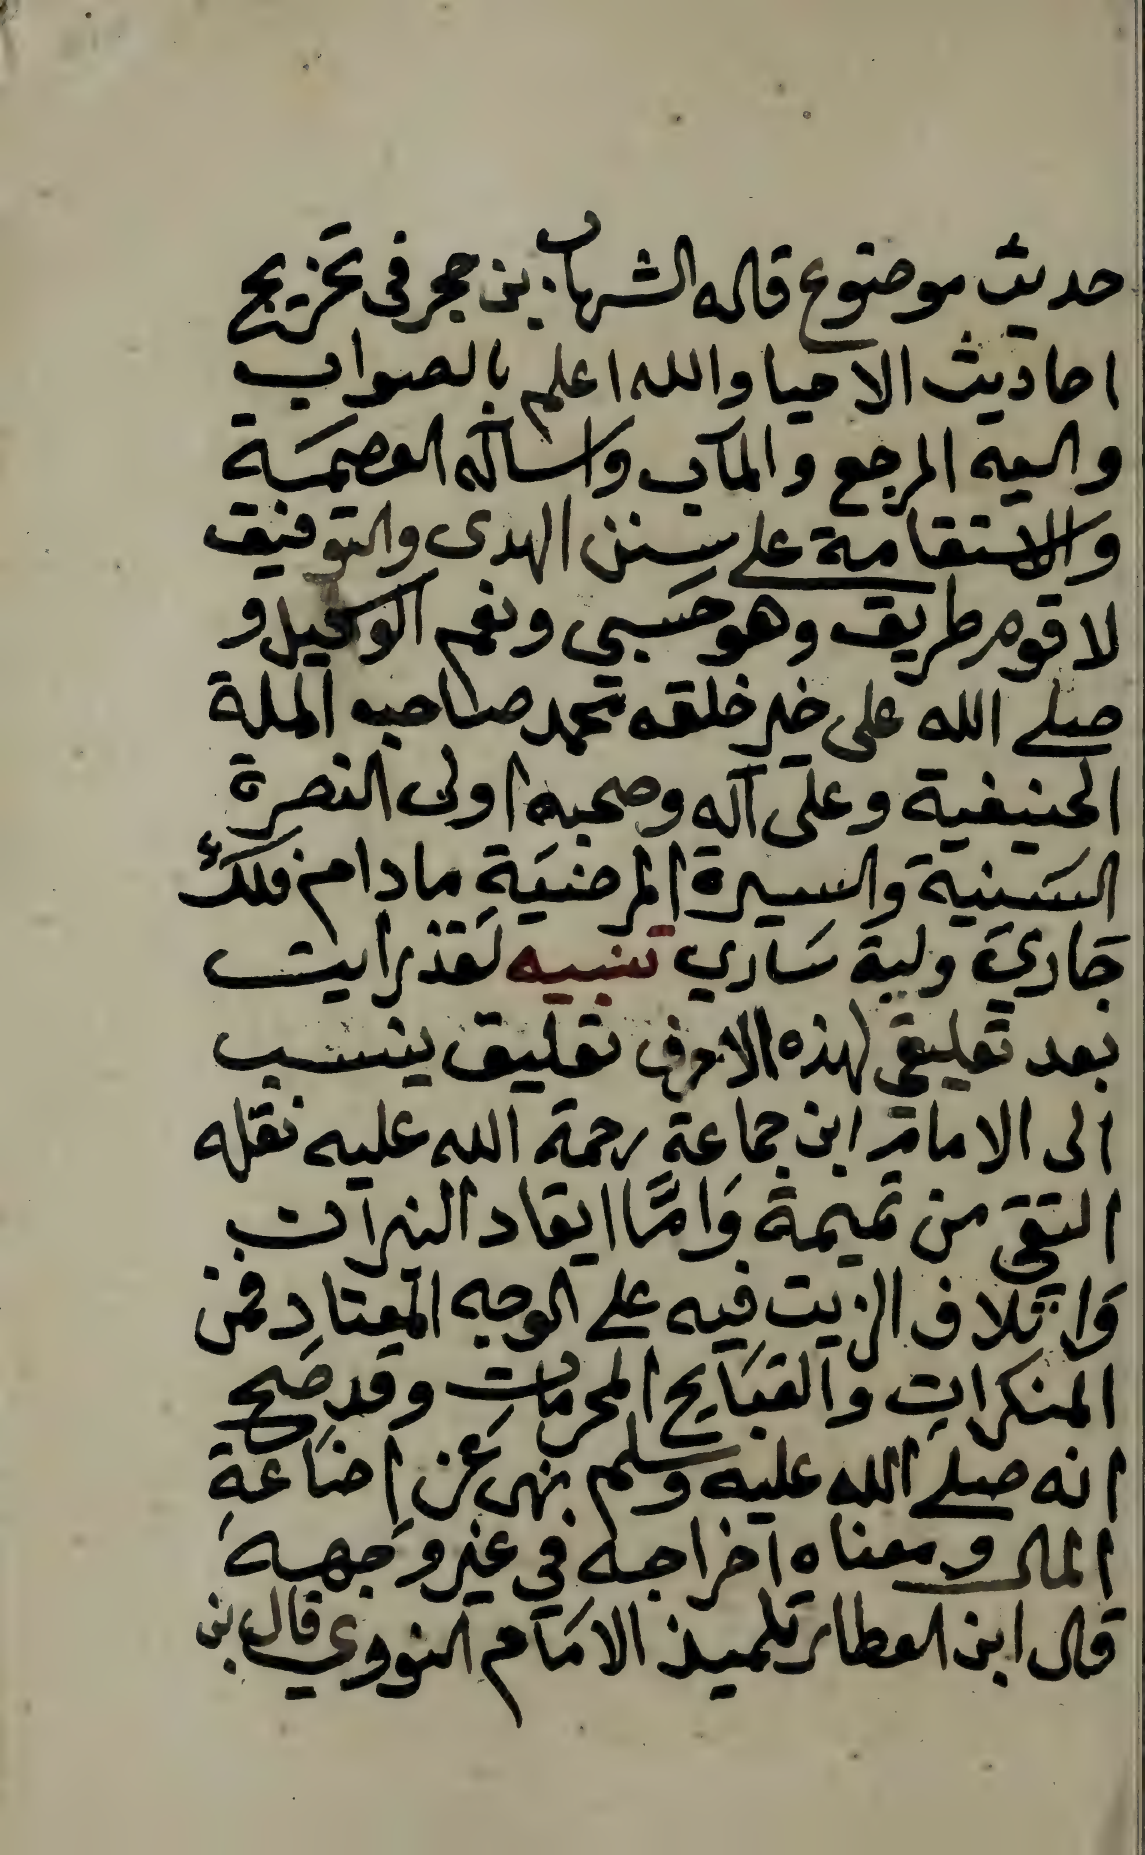 حديث موضوع قاله الشهاب بن حجر في تخريج
احاديث الاحيا والله اعلم بالصواب
واليه المرجع والمآب واساله العصمَة
والاستقامة على سنن الهدى والتوفيق
لاقوم طريق وهو حَسبي ونعم الوكيل و
صلى الله على خير خلقه محمد صاحب الملة
الحنيفية وعلى آله وصحبه اولى النصرة
السَنية والسيرة المرضيَة مادام فلكٌ
جَاريَ سَاري تنبيه لَقد رايت
بعد تعليقي لهذه الاحرف تعليق ينسب
الى الامام ابن جماعة رحمة الله عليه نقله
التقي من تميمة وَامَّا ايقاد النيرات
وَاتلاف الزيت فيه على الوجه المعتادِ فمن
المنكراتِ والقبَايح المحرمات وقد صَحِ
انه صلى الله عليه وسلم نهى عَن اِضَاعَةِ
المال ومعناه اخراجه في غير وَجهِهِ
قال ابن العطار تلميذ الامَام النووي قال بن